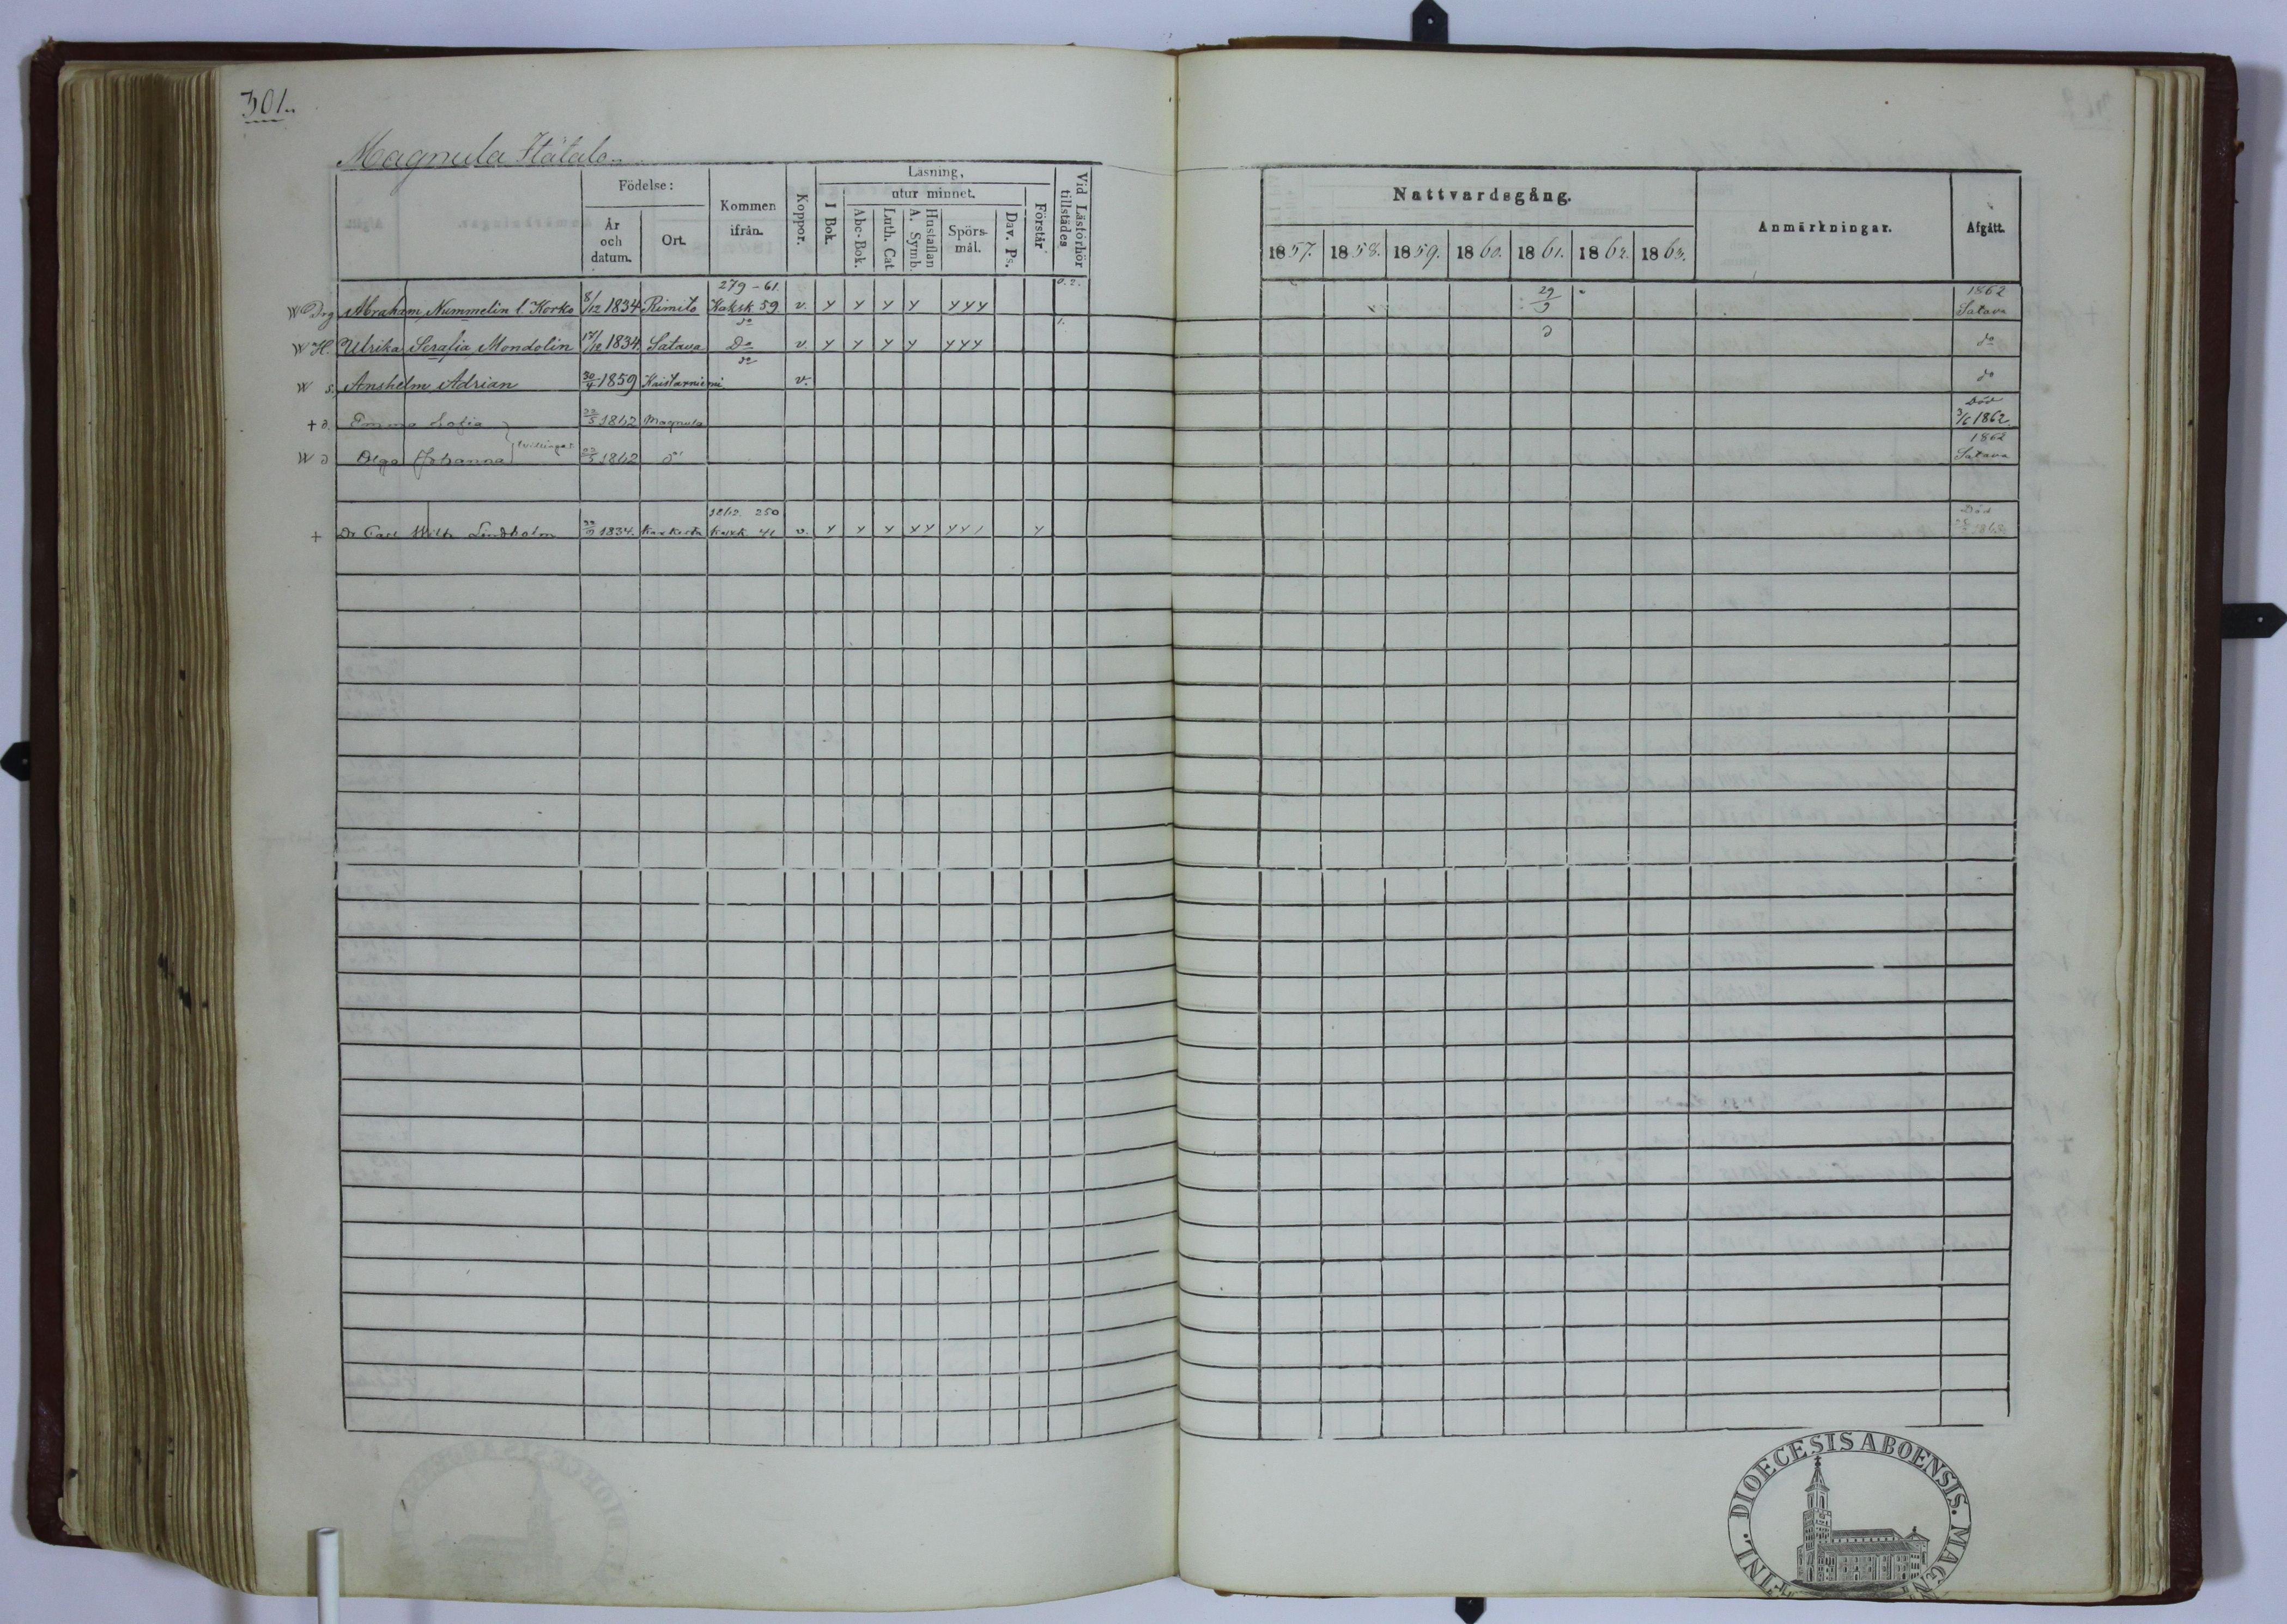 301.
Magnula Itätalo
Födelse:
År och datum.
Ort.
Kommen ifrån.
Koppor.
Läsning,
utur minnet.
I Bok.
Abc-Bok.
Luth. Cat
Hustaflan A. Symb.
Spörs- mål.
Dav. Ps.
Förstår
Vid Läsförhör tillstädes
Nattvardsgång.
1857. 1858. 1859. 1860. 1861. 1862. 1863.
Anmärkningar.
Afgått.
279-61. 1862
W Drg Abraham Nummelin l. Korko 8/12 1834 Rimito Kaksk 59 v. y y y y y y y 29/9 Satava
do
W H. Ulrika Serafia Mondolin 17/12 1834. Satava Do v. y y y y y y y do
do
W s. Anshelm Adrian 30/4 1859 Kaistarniemi v. do
Död
+ d. Emma Sofia 22/5 1862 Magnula 3/6 1862.
tvillingar 1862
W d Olga Johanna 22/5 1862 do Satava
1862. 250 Död
+ Dr Carl Wilh. Lindholm 1834. Kaxkerta Kaxk. 41 v. y y y y y y y y 1863
DIOECESIS ABOENSIS. MAGN
FINL.